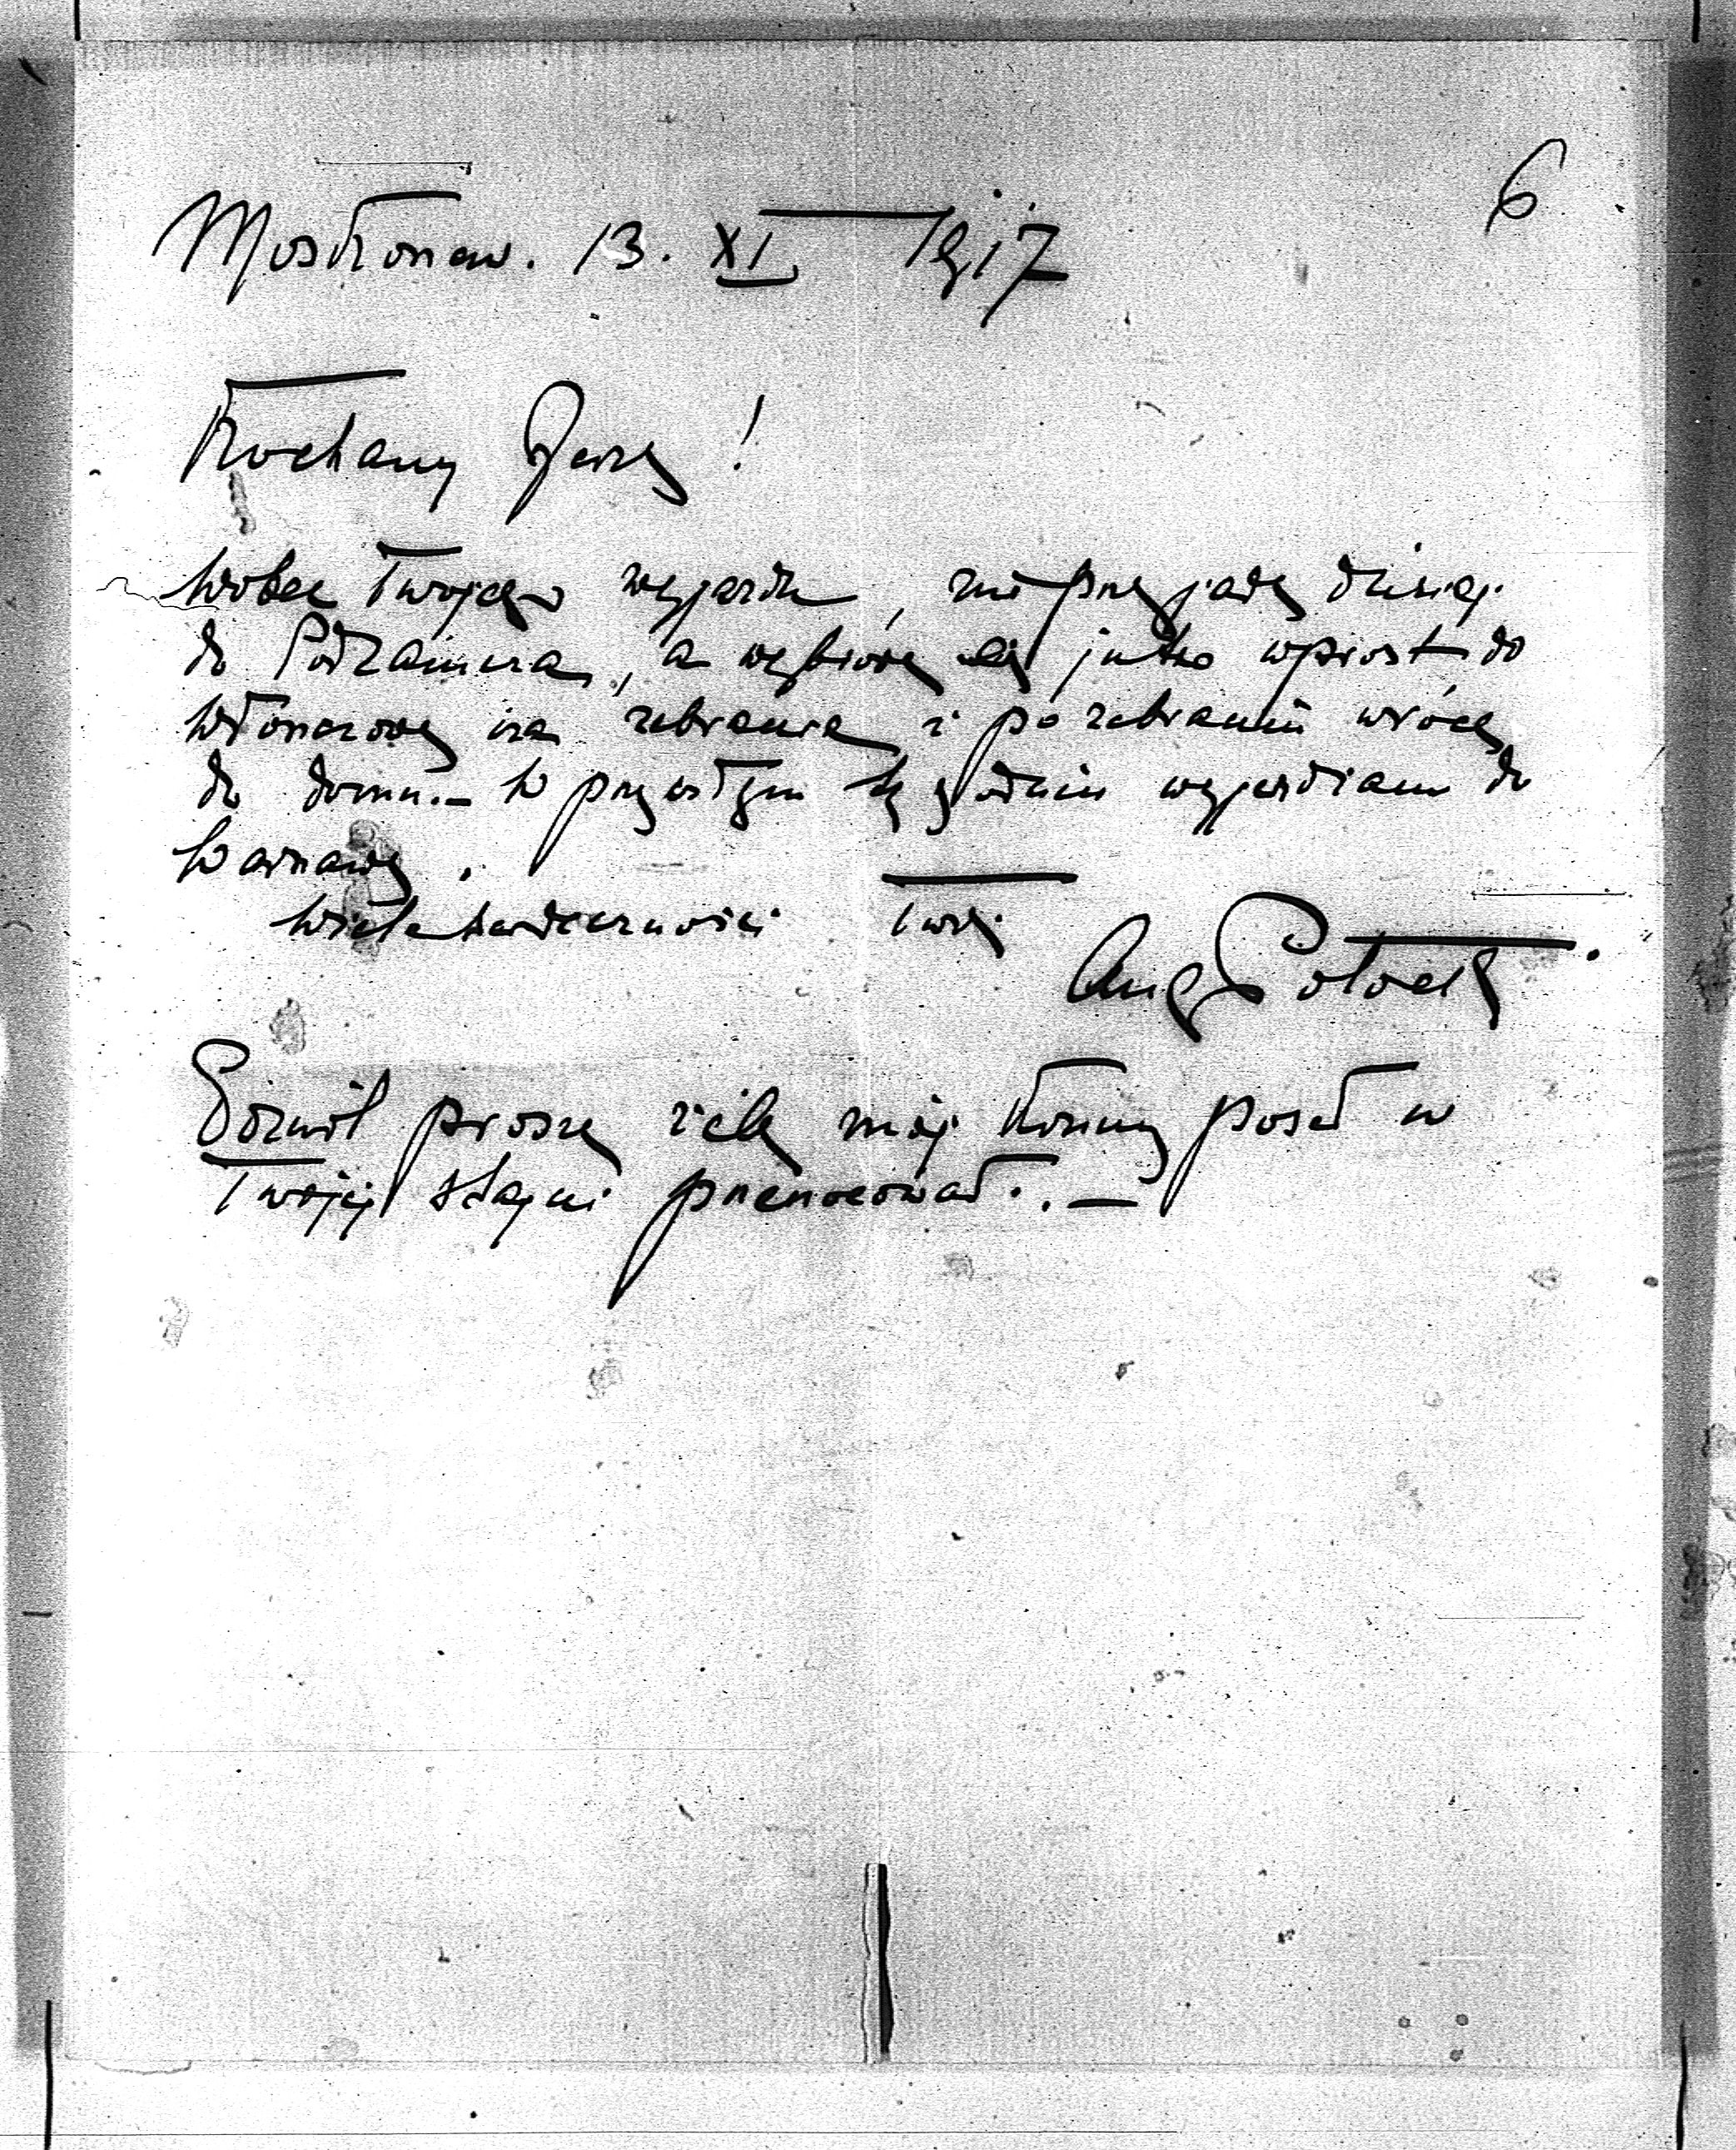 6
Moskorzew. 13. XI 1917
Kochany Jerzy!
Wobec Twojego wyjazdu, nie przyjadę dzisiaj
do Podzamcza, a wybiorę się jutro wprost do
Włoszczowy na zebranie i po zebraniu wrócę
do domu. – W przyszłym tygodniu wyjeżdżam do
Warszawy.
Wiele serdeczności Twój
Aug Potocki.
Pozwól proszę żeby mój konny poseł w
Twojej stajni przenocował. –